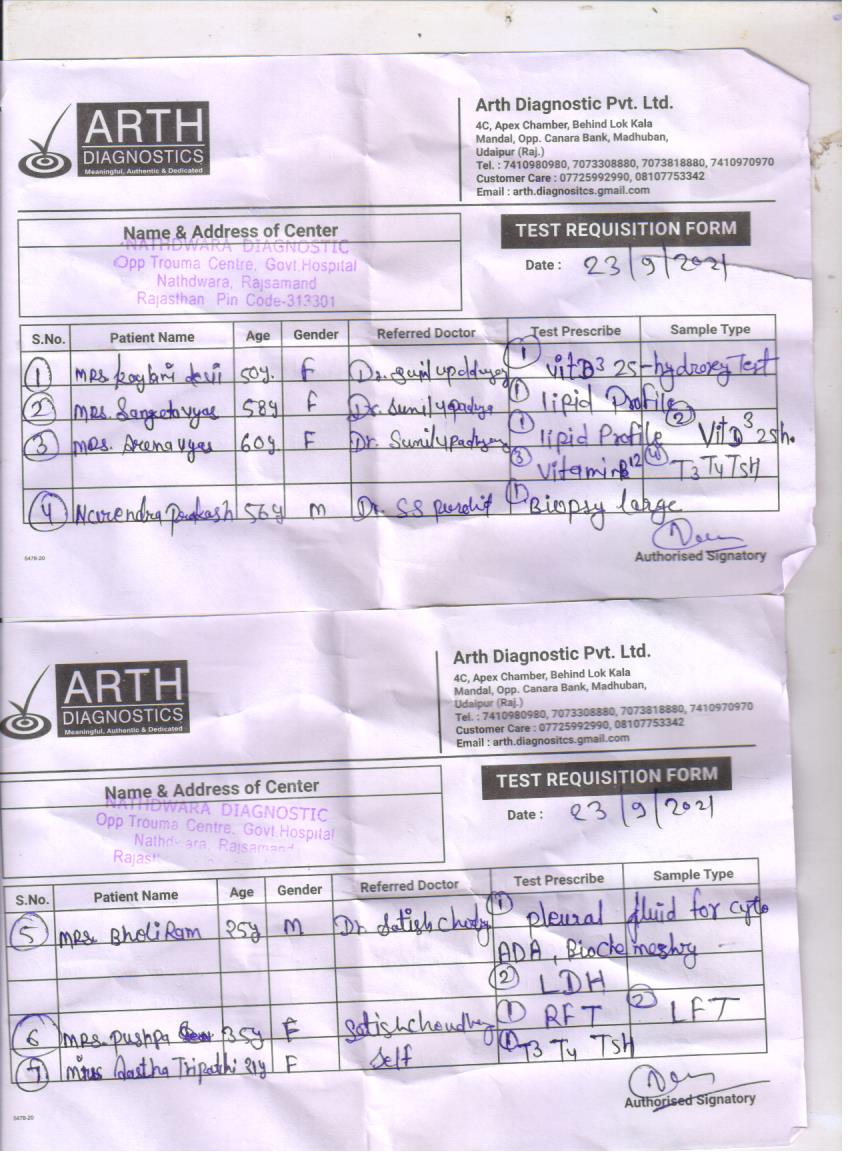 ARTH
DIAGNOSTICS
Meaningful, Authentic & Dedicated
Arth Diagnostic Pvt. Ltd.
4C, Apex Chamber, Behind Lok Kala
Mandal, Opp. Canara Bank, Madhuban,
Udaipur (Raj.)
Tel. : 7410980980, 7073308880, 7073818880, 7410970970
Customer Care : 07725992990, 08107753342
Email : arth.diagnositcs.gmail.com
Name & Address of Center
NATHDWARA DIAGNOSTIC
Opp Trouma Centre, Govt.Hospital
Nathdwara, Rajsamand
Rajasthan Pin Code-313301
TEST REQUISITION FORM
Date : 23/9/2021
S.No. Patient Name Age Gender Referred Doctor Test Prescribe Sample Type
1 MRS. devii 50y. F Dr. Sunil ① Vit D3 25-hydroxy Test
2 MRS. Sangeeta vyas 58y F Dr. Sunil ① lipid Profile
3 MRS. vyas 60y F Dr. Sunil ① lipid Profile ② Vit D3 25h.
③ Vitamin B12 ④ T3 T4 TSH
4 Narendra Prakash 56y M Dr. SS ① Biopsy large
5478-20
Authorised Signatory
ARTH
DIAGNOSTICS
Meaningful, Authentic & Dedicated
Arth Diagnostic Pvt. Ltd.
4C, Apex Chamber, Behind Lok Kala
Mandal, Opp. Canara Bank, Madhuban,
Udaipur (Raj.)
Tel. : 7410980980, 7073308880, 7073818880, 7410970970
Customer Care : 07725992990, 08107753342
Email : arth.diagnositcs.gmail.com
Name & Address of Center
NATHDWARA DIAGNOSTIC
Opp Trouma Centre, Govt.Hospital
Nathdwara, Rajsamand
Rajast
TEST REQUISITION FORM
Date : 23/9/2021
S.No. Patient Name Age Gender Referred Doctor Test Prescribe Sample Type
5 MRS. Bholi Ram M Dr. Satish ① pleural fluid for cyto
ADA, Biochemeshry
② LDH
6 MRS. Pushpa 35y F Satish choudhry ① RFT ② LFT
7 Aastha Tripathi 21y F Self ① T3 T4 TSH
5478-20
Authorised Signatory